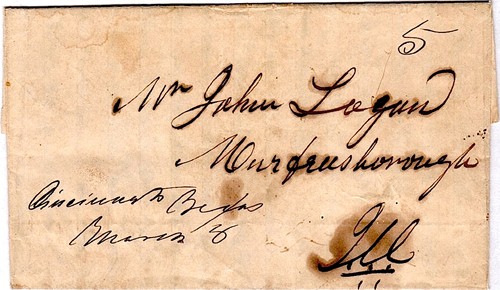 5
Mr John Logan
Murfreesborough
Cincinnati Texas
March 8
Ill